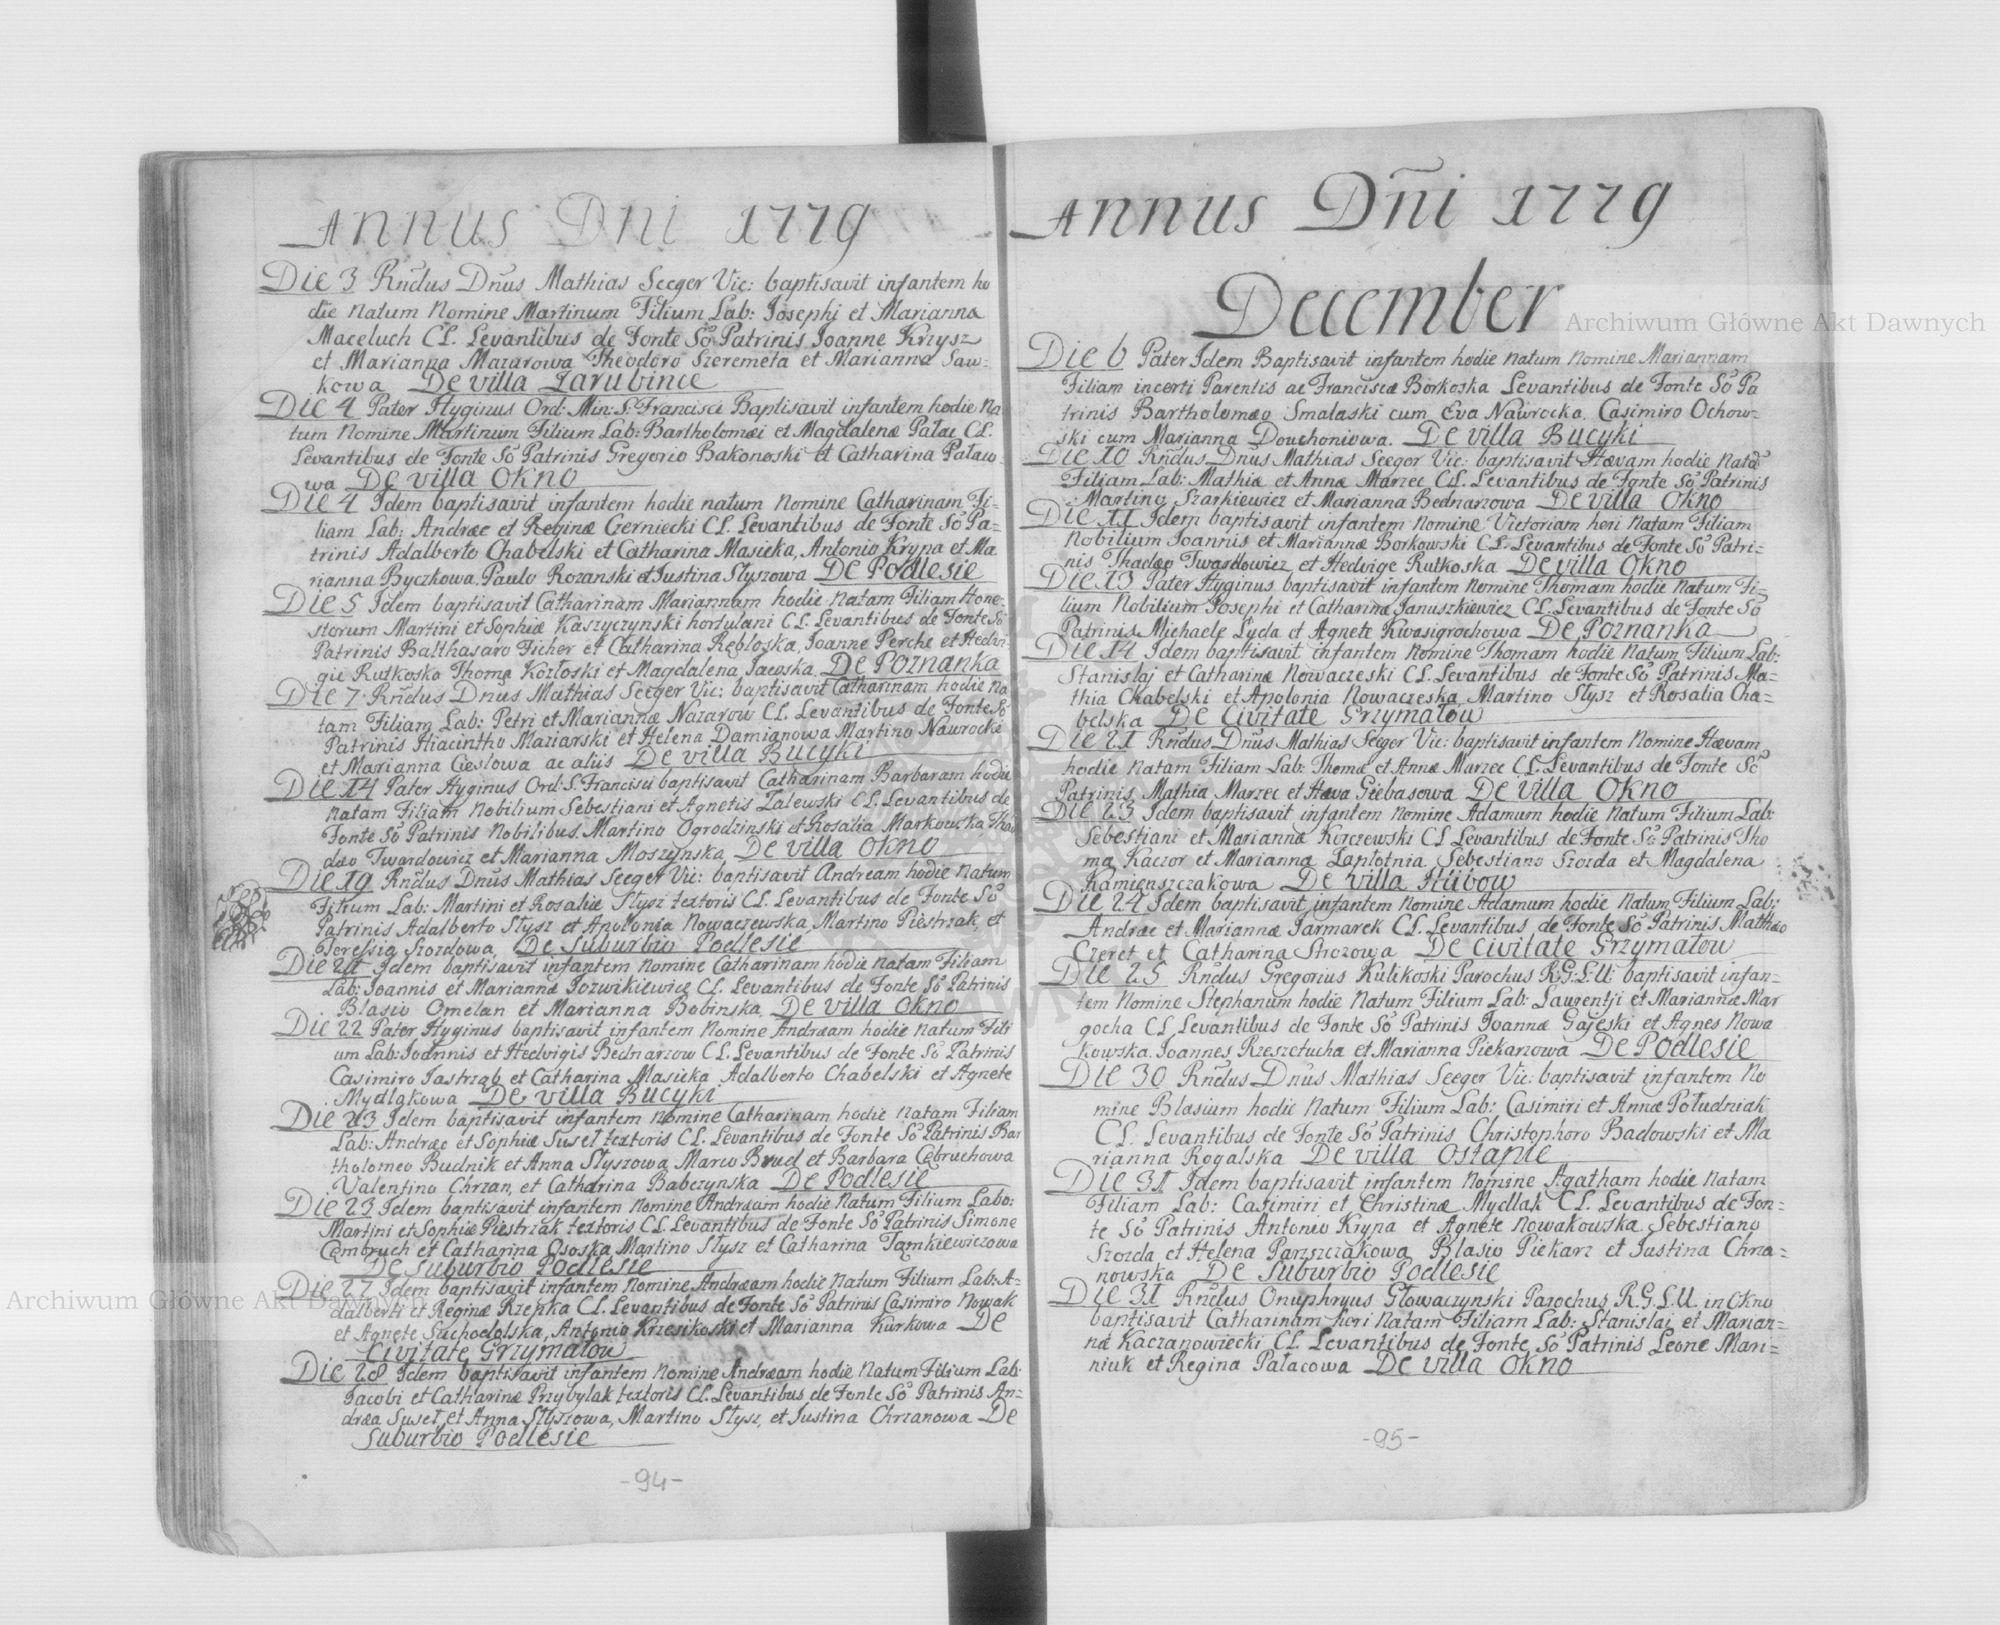 Annus Dni 1779
Die 3 Rndus Dnus Mathias Seeger Vic: baptisavit infantem ho
die natum Nomine Martinum Filium Lab: Josephi et Marianna
Maceluch CL. Levantibus de Fonte So Patrinis Joanne Krzysz
et Marianna Mazarowa Theodoro Szeremeta et Marianna Saw-
kowa De villa Zarubince
Die 4 Pater Hyginus Ord: Min: S. Francisci Baptisavit infantem hodie Na
tum Nomine Martinum Filium Lab: Bartholomæi et Magdalenæ Pałac CL.
Levantibus de Fonte So Patrinis Gregorio Bakonoski et Catharina Pałaco-
wa De villa Okno
Die 4 Idem baptisavit infantem hodie natum Nomine Catharinam Fi-
liam Lab: Andreæ et Reginæ Czerniecki CL. Levantibus de Fonte So Pa=
trinis Adalberto Chabelski et Catharina Masicka, Antonio Krypa et Ma
rianna Byczkowa, Paulo Rozanski et Justina Słyszowa De Podlesie
Die 5 Idem baptisavit Catharinam Mariannam hodie Natam Filiam Hone-
storum Martini et Sophiæ Kaszyczynski hortulani CL. Levantibus de Fonte So
Patrinis Balthasaro Ficher et Catharina Rębloska, Joanne Perche et Hedvi-
gie Rutkoska Thoma Kozłoski et Magdalena Jaeoska, De Poznanka
Die 7 Rndus Dnus Mathias Seeger Vic: baptisavit Catharinam hodie Na
tam Filiam Lab: Petri et Mariannæ Nazarow CL. Levantibus de Fonte So
Patrinis Hiacintho Maziarski et Helena Damianowa Martino Nawrocki
et Marianna Cieslowa ac aliis De villa Bucyki
Die 14 Pater Hyginus Ord: S. Francisci baptisavit Catharinam Barbaram hodie
Natam Filiam Nobilium Sebestiani et Agnetis Zalewski CL. Levantibus de
Fonte So Patrinis Nobilibus. Martino Ogrodzinski et Rosalia Markowska Tha
dæo Twardowicz et Marianna Moszynska, De villa Okno
Die 19 Rndus Dnus Mathias Seeger Vic: baptisavit Andream hodie Natum
Filium Lab: Martini et Rosaliæ Słysz textoris CL. Levantibus de Fonte So
Patrinis Adalberto Słysz et Apolonia Nowaczewska, Martino Piestrzak, et
Teressia Szozdowa, De Suburbio Podlesie
Die 21 Idem baptisavit infantem Nomine Catharinam hodie Natam Filiam
Lab: Joannis et Mariannæ Jozwikiewicz CL. Levantibus de Fonte So Patrinis
Blasio Omelan et Marianna Bobinska, De villa Okno
Die 22 Pater Hyginus baptisavit infantem Nomine Andræam hodie Natum Fili
um Lab: Joannis et Hedvigis Bednarzow CL. Levantibus de Fonte So Patrinis
Casimiro Jastrząb et Catharina Masicka Adalberto Chabelski et Agnete
Mydlakowa De villa Bucyki
Die 23 Idem baptisavit infantem Nomine Catharinam hodie Natam Filiam
Lab: Andreæ et Sophiæ Suset textoris CL. Levantibus de Fonte So Patrinis Bar
tholomeo Budnik et Anna Słyszowa Marco Brud et Barbara Cębruchowa
Valentino Chrzan, et Catharina Babczynska De Podlesie
Die 23 Idem baptisavit infantem Nomine Andræam hodie Natum Filium Labo:
Martini et Sophiæ Piestrzak textoris CL. Levantibus de Fonte So Patrinis Simone
Cembruch et Catharina Ososka Martino Słysz et Catharina Tamkiewiczowa
De Suburbio Podlesie
Die 27 Idem baptisavit infantem Nomine Andræam hodie Natum Filium Lab: A-
dalberti et Reginæ Rzepka CL. Levantibus de Fonte So Patrinis Casimiro Nowak
et Agnete Suchodolska, Antonio Krzesikoski et Marianna Kurkowa De
Civitate Grzymałow
Die 28 Idem baptisavit infantem Nomine Andræam hodie Natum Filium Lab:
Jacobi et Catharinæ Przybylak textoris CL. Levantibus de Fonte So Patrinis An=
dræa Suset, et Anna Słyszowa, Martino Słysz, et Justina Chrzanowa De
Suburbio Podlesie
-94-
Annus Dni 1779
December
Die 6 Pater Idem Baptisavit infantem hodie Natum Nomine Mariannam
Filiam incerti Parentis ac Franciscæ Borkoska Levantibus de Fonte So Pa
trinis Bartholomæo Smalaski cum Eva Nawrocka, Casimiro Ochow-
ski cum Marianna Douchoniowa. De villa Bucyki
Die 10 Rndus Dnus Mathias Seeger Vic: baptisavit Hævam hodie Nata
Filiam Lab: Mathiæ et Annæ Marzec CL. Levantibus de Fonte So Patrinis
Martino Szarkiewicz et Marianna Bednarzowa De villa Okno
Die 11 Idem baptisavit infantem Nomine Victoriam heri Natam Filiam
Nobilium Joannis et Mariannæ Borkowski CL. Levantibus de Fonte So Patri-
nis Thadæo Twardowicz et Hedvige Rutkoska De villa Okno
Die 13 Pater Hyginus baptisavit infantem Nomine Thomam hodie Natum Fi-
lium Nobilium Josephi et Catharinæ Januszkiewicz CL. Levantibus de Fonte So
Patrinis Michaele Lyda et Agnete Kwasigrochowa De Poznanka
Die 14 Idem baptisavit infantem Nomine Thomam hodie Natum Filium Lab:
Stanislai et Catharinæ Nowaczeski CL. Levantibus de Fonte So Patrinis Ma=
thia Chabelski et Apolonia Nowaczeska Martino Słysz et Rosalia Cha=
belska De Civitate Grzymałow
Die 21 Rndus Dnus Mathias Seeger Vic: baptisavit infantem Nomine Hævam
hodie Natam Filiam Lab: Thomæ et Annæ Marzec CL. Levantibus de Fonte So
Patrinis Mathia Marzec et Hæva Giebasowa De villa Okno
Die 23 Idem baptisavit infantem Nomine Adamum hodie Natum Filium Lab:
Sebestiani et Marianna Korczewski CL Levantibus de Fonte So Patrinis Tho
ma Kaczor et Marianna Zapłotnia Sebestiano Szozda et Magdalena
Kamienszczakowa De villa Hlibow
Die 24 Idem baptisavit infantem Nomine Adamum hodie Natum Filium Lab:
Andreæ et Mariannæ Jarmarek CL. Levantibus de Fonte So Patrinis Mathæo
Czeret et Catharina Strozowa De Civitate Grzymałow
Die 25 Rndus Gregorius Kulikoski Parochus R.G.L.U: baptisavit infan-
tem Nomine Stephanum hodie Natum Filium Lab: Laurentji et Mariannæ Mar
gocha CL Levantibus de Fonte So Patrinis Joanne Gajeski et Agnes Nowa
kowska. Joannes Rzeszetucha et Marianna Piekarzowa De Podlesie
Die 30 Rndus Dnus Mathias Seeger Vic: baptisavit infantem No
mine Blasium hodie Natum Filium Lab: Casimiri et Annæ Południak
CL. Levantibus de Fonte So Patrinis Christophoro Badowski et Ma
rianna Rogalska De villa Ostapie
Die 31 Idem baptisavit infantem Nomine Agatham hodie Natam
Filiam Lab: Casimiri et Christinæ Mydlak CL. Levantibus de Fon=
te So Patrinis Antonio Krypa et Agnete Nowakowska Sebestiano
Szozda et Helena Parzszczakowa Blasio Piekarz et Justina Chrza=
nowska De Suburbio Podlesie
Die 31 Rndus Onuphryus Głowaczynski Parochus R.G.L.U. in Okno
baptisavit Catharinam heri Natam Filiam Lab: Stanislai et Marian=
næ Kaczanowiecki CL Levantibus de Fonte So Patrinis Leone Mari=
niuk et Regina Pałacowa De villa Okno
-95-
Archiwum Główne Akt Dawnych
Archiwum Główne Akt Dawnych